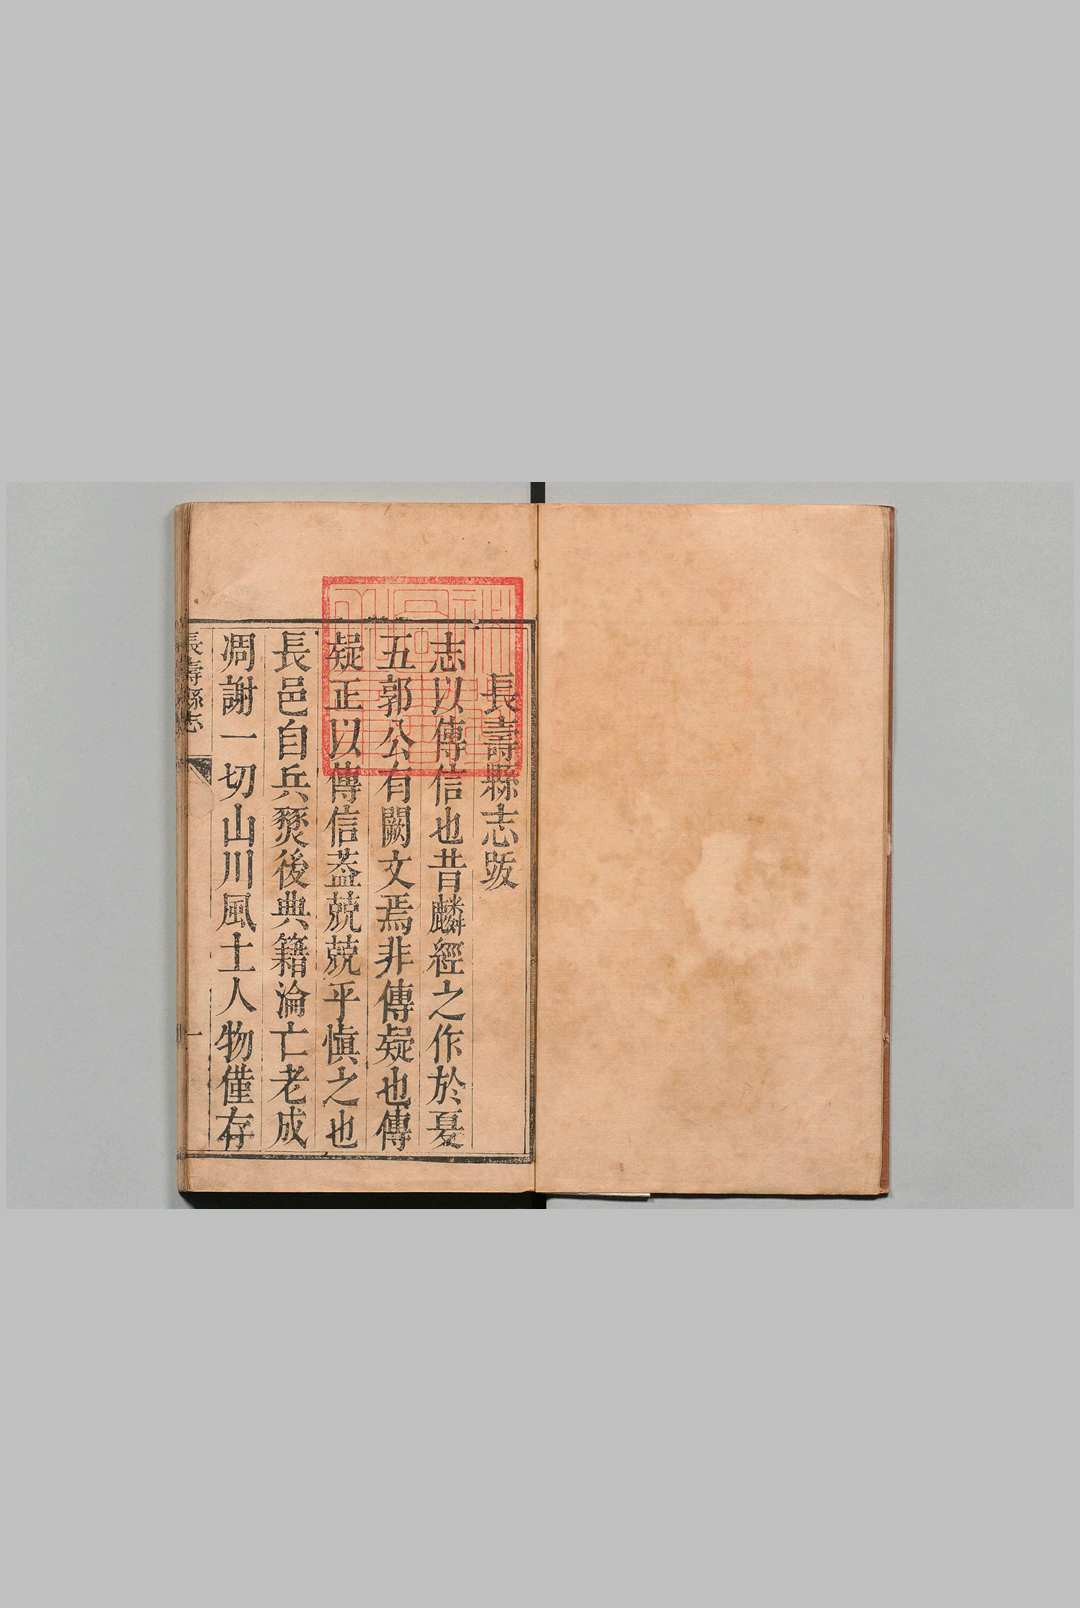 長壽縣志跋
志以傳信也昔麟經之作於夏
五郭公有闕文焉非傳疑也傳
疑正以傳信葢兢兢乎慎之也
長邑自兵燹後典籍淪亡老成
凋謝一切山川風土人物僅存
長壽縣志
一